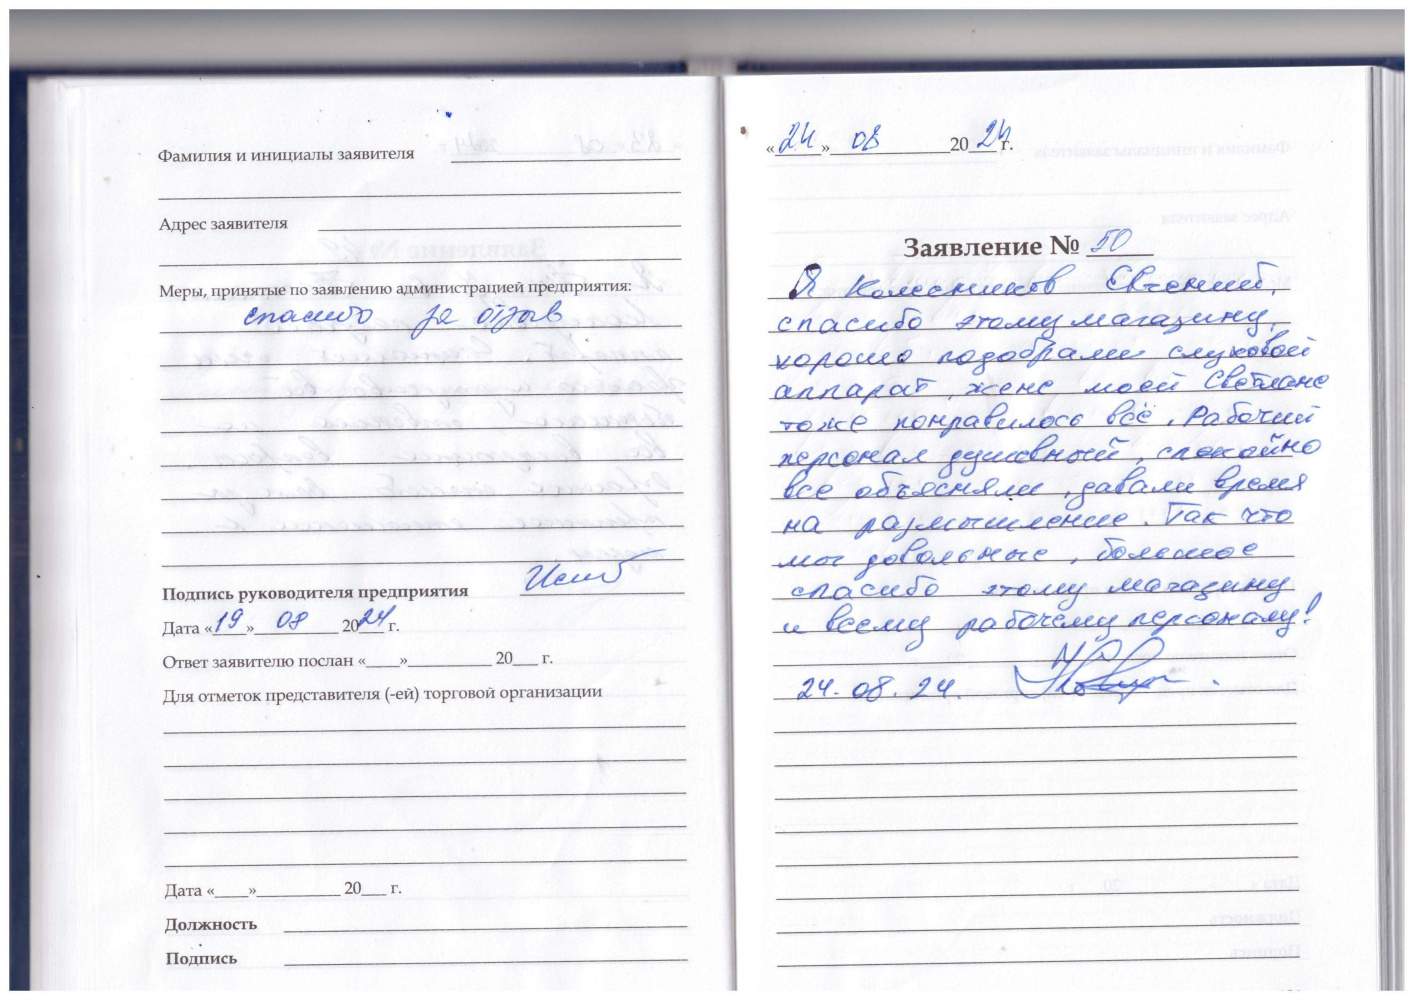 Фамилия и инициалы заявителя
Адрес заявителя
Меры, принятые по заявлению администрацией предприятия:
спасибо за отзыв
Подпись руководителя предприятия
Дата «19» 08 2024 г.
Ответ заявителю послан «____»__________ 20___ г.
Для отметок представителя (-ей) торговой организации
Дата «____»__________ 20___ г.
Должность
Подпись
«24» 08 2024 г.
Заявление № 50
Я Колесников Евгений,
спасибо этому магазину,
хорошо подобрали слуховой
аппарат, жене моей Светлане
тоже понравилось всё. Рабочий
персонал душевный, спокойно
все объясняли, давали время
на размышление. Так что
мы довольные, большое
спасибо этому магазину
и всему рабочему персоналу!
24.08.24.